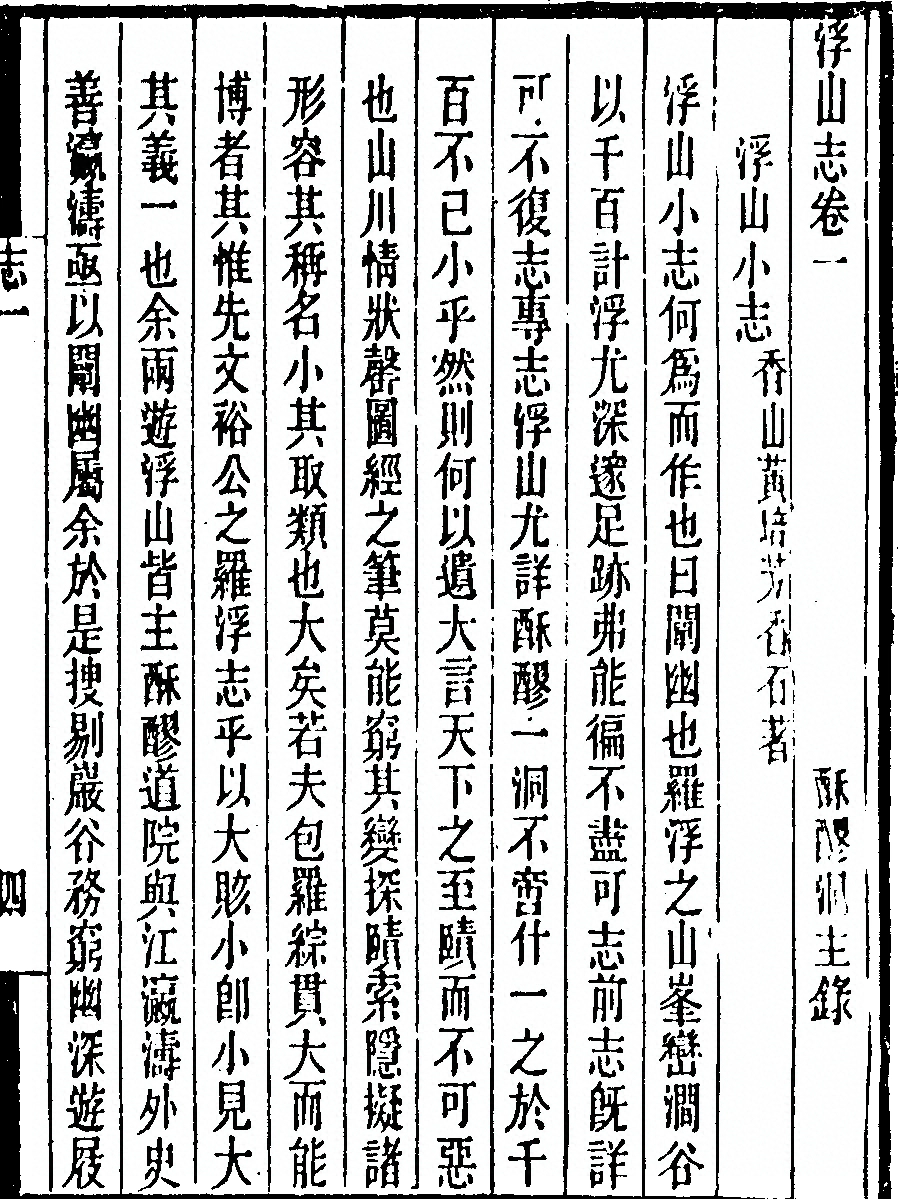 浮山志卷一　酥醪洞主錄
浮山小志　香山黃培芳香石著
浮山小志何爲而作也曰闡幽也羅浮之山峯巒澗谷
以千百計浮尤深邃足跡弗能徧不盡可志前志旣詳
可不復志專志浮山尤詳酥醪一洞不啻什一之於千
百不已小乎然則何以遺大言天下之至賾而不可惡
也山川情狀罄圖經之筆莫能窮其變探賾索隱擬諸
形容其稱名小其取類也大矣若夫包羅綜貫大而能
博者其惟先文裕公之羅浮志乎以大賅小卽小見大
其義一也余兩遊浮山皆主酥醪道院與江瀛濤外史
善瀛濤亟以闡幽屬余於是搜剔巖谷務窮幽深遊屐
志一　四